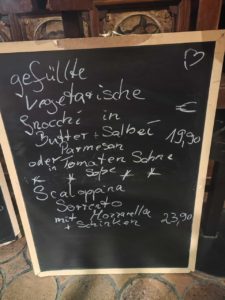 gefüllte
Vegetarische
Gnocchi in
Butter + Salbei
Parmesan
€
19,90
oder in Tomaten Sahne
* Soße * *
Scaloppina
Sorrento
mit Mozzarella
+ Schinken
23,90